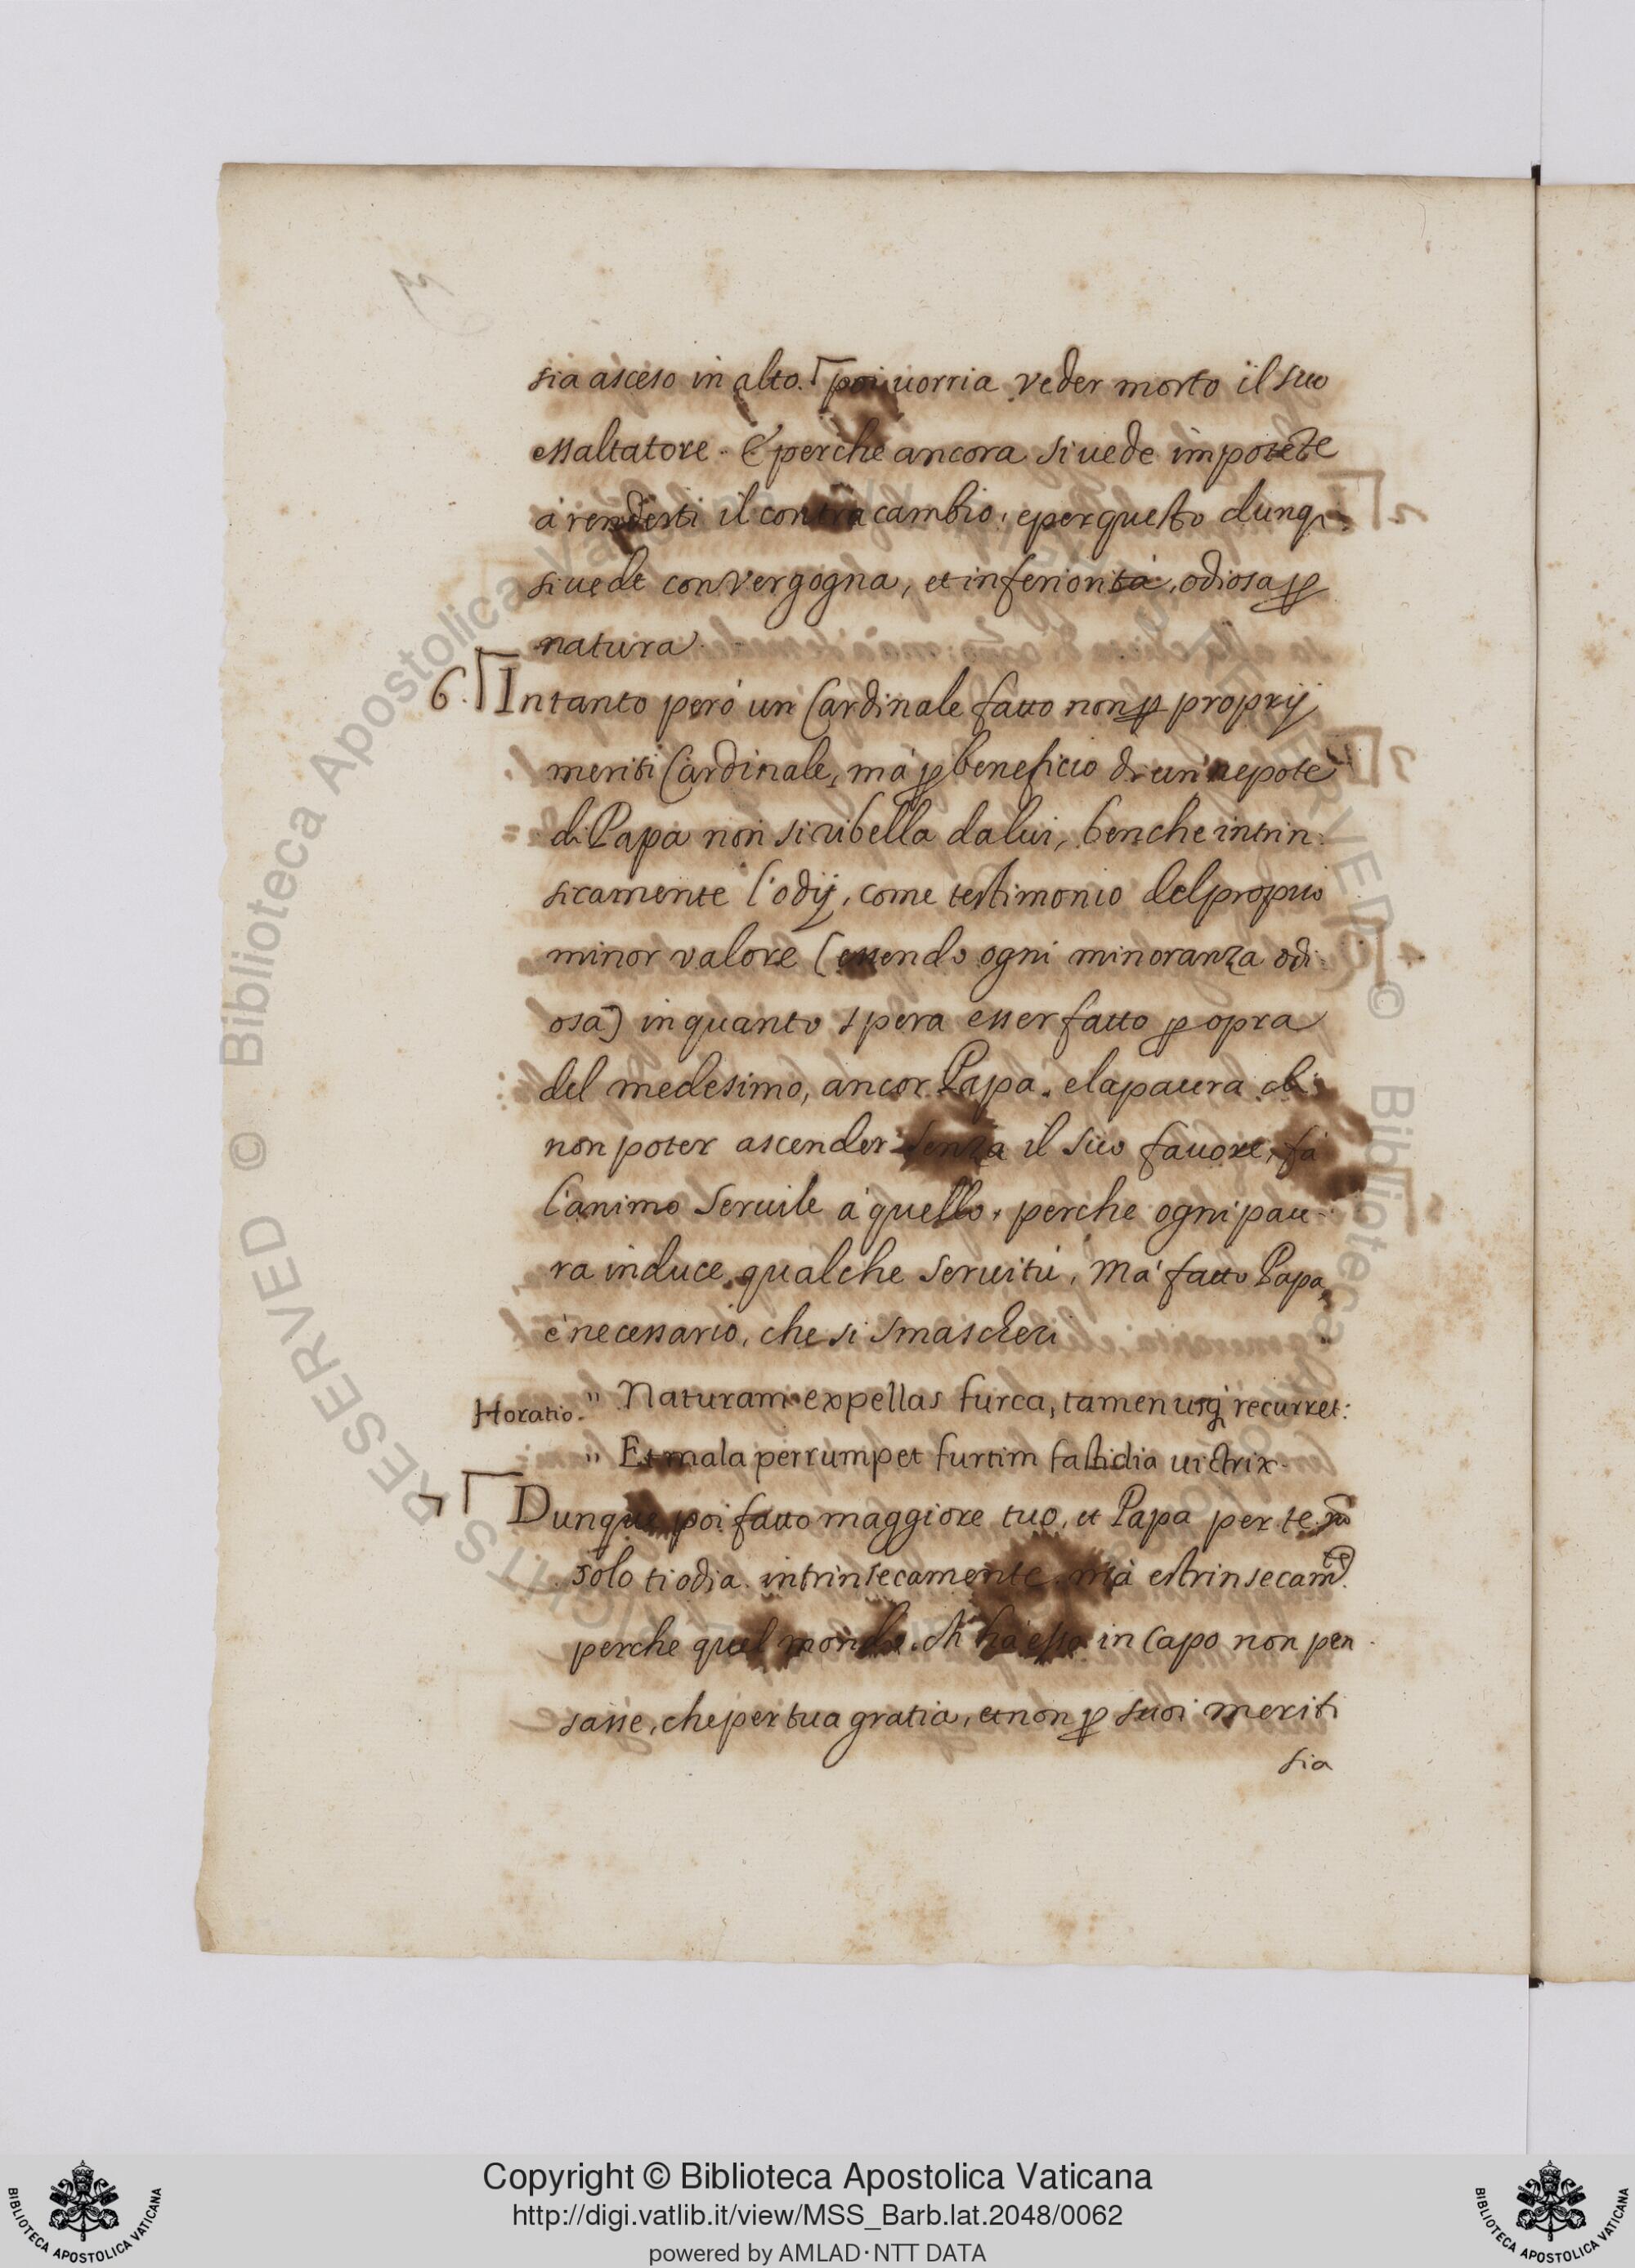 sia asceso in alto. poi uorria veder morto il suo
essaltatore. E perche ancora si uede impotēte
à renderti il contracambio, e per questo dunq;
si uede con vergogna, et inferiorità, odiosa ꝑ
natura.
6. Intanto però un Cardinale fatto non ꝑ proprij
meriti Cardinale, mà ꝑ beneficio di un nepote
di Papa non si ribella da lui, benche intrin:
sicamente l'odij, come testimonio del proprio
minor valore (essendo ogni minoranza odi:
osa) in quanto spera esser fatto ꝑ opra
del medesimo, ancor Papa. e la paura di
non poter ascender senza il suo fauore, fà
l'animo seruile à quello, perche ogni pau-
ra induce qualche seruitù. Mà fatto Papa,
è necessario, che si smascheri
Horatio. " Naturam expellas furca, tamen usq; recurret:
" Et mala perrumpet furtim fastidia uictrix.
7 Dunque poi fatto maggiore tuo, et Papa per te nō
solo ti odia intrinsecamente, mà estrinsecamte.
perche quel mondo, ch' hà esso in Capo non pen
sasse, che per tua gratia, et non ꝑ suoi meriti
sia
BIBLIOTECA APOSTOLICA VATICANA
Copyright © Biblioteca Apostolica Vaticana
http://digi.vatlib.it/view/MSS_Barb.lat.2048/0062
powered by AMLAD·NTT DATA
BIBLIOTECA APOSTOLICA VATICANA